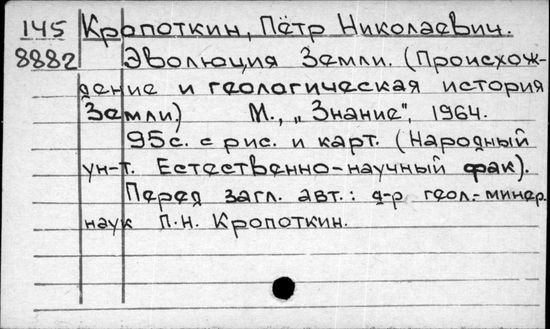 145 Кропоткин, Пётр Николаевич.
8882 Эволюция Земли. (Происхож-
дение и геологическая история
Земли) М., „Знание", 1964.
95с. с рис. и карт. (Народный
ун-т. Естественно-научный фак).
Перед загл. авт.: д-р геол.-минер.
наук П.Н. Кропоткин.